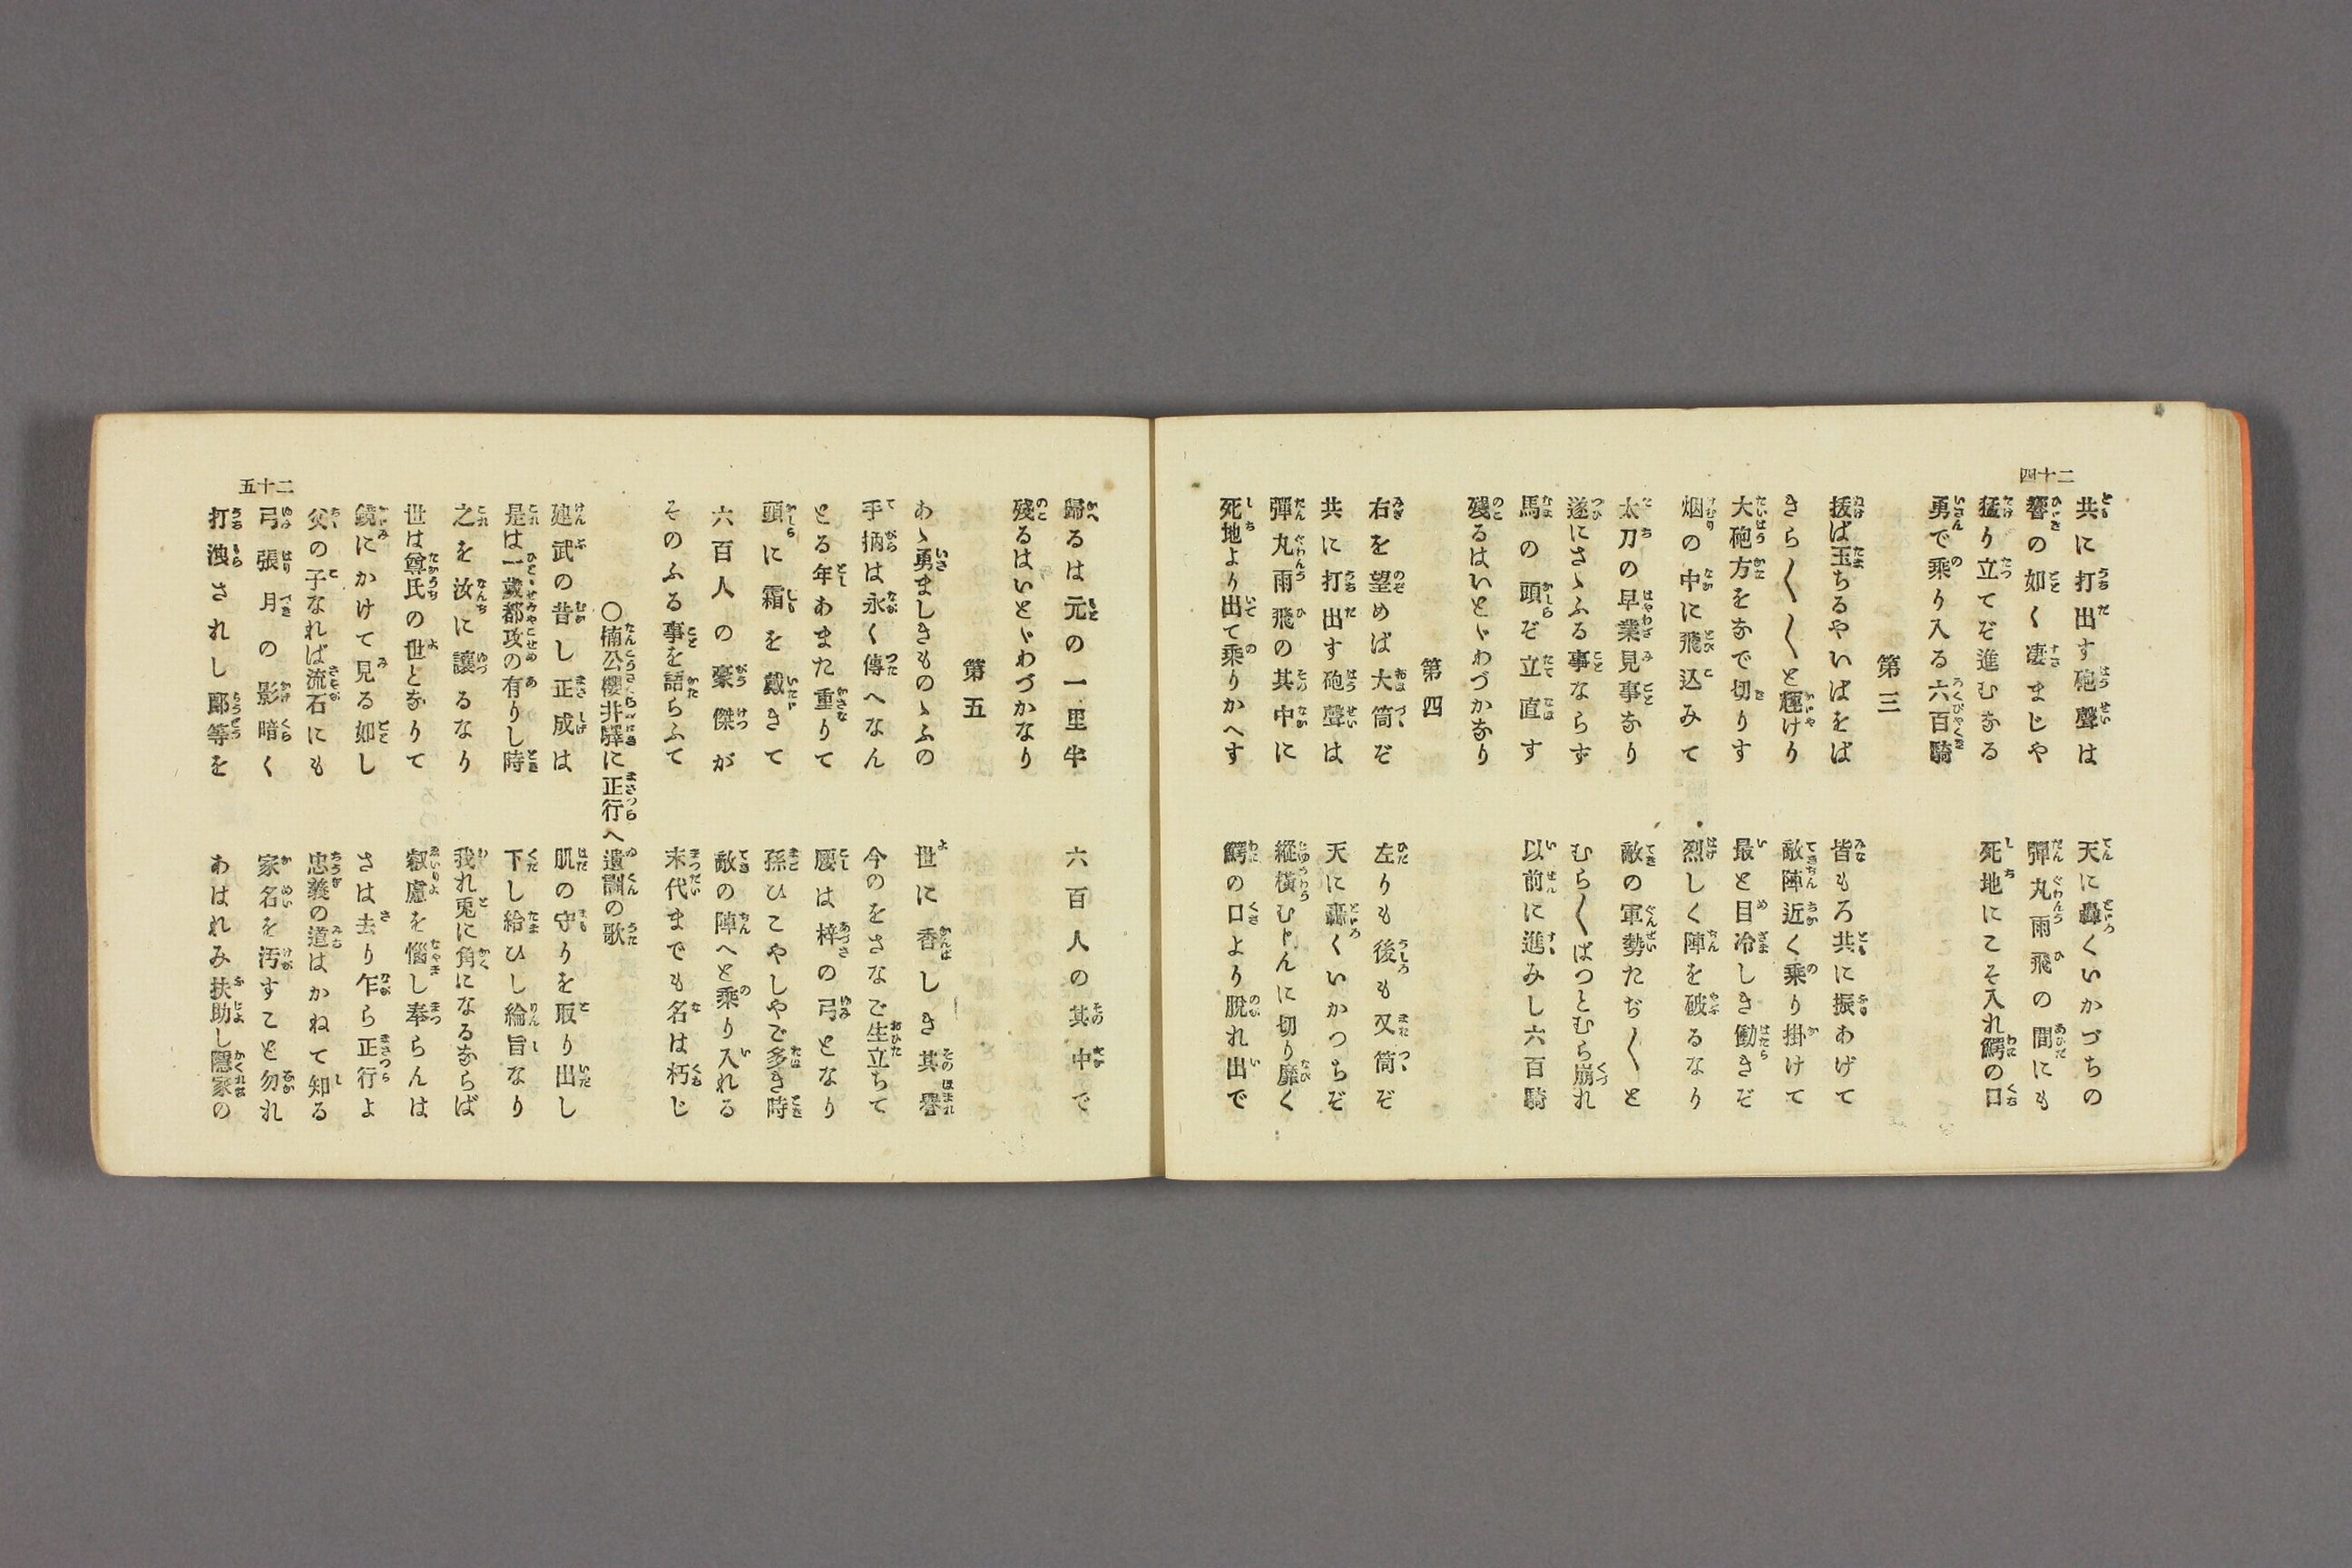 二十四
共に打出す砲聲は　天に轟くいかづちの
響の如く凄まじや　彈丸雨飛の間にも
猛り立てぞ進むなる　死地にこそ入れ鰐の口
勇で乘り入る六百騎
第三
拔ば玉ちるやいばをば　皆もろ共に振あげて
きら〱〱と輝けり　敵陣近く乘り掛けて
大砲方をなで切りす　最と目冷しき働きぞ
烟の中に飛込みて　烈しく陣を破るなり
太刀の早業見事なり　敵の軍勢たぢ〱と
遂にさゝふる事ならず　むら〱ぱつとむら崩れ
馬の頭ぞ立直す　以前に進みし六百騎
殘るはいとゞわづかなり
第四
右を望めば大筒ぞ　左りも後も又筒ぞ
共に打出す砲聲は　天に轟くいかつちぞ
彈丸雨飛の其中に　縱橫むじんに切り靡く
死地より出て乘りかへす　鰐の口より脫れ出で
歸るは元の一里半　六百人の其中で
殘るはいとゞわづかなり
第五
あゝ勇ましきものゝふの　世に香しき其譽
手抦は永く傳へなん　今のをさなご生立ちて
とる年あまた重りて　腰は梓の弓となり
頭に霜を戴きて　孫ひこやしやご多き時
六百人の豪傑が　敵の陣へと乘り入れる
そのふる事を語らふて　末代までも名は朽じ
〇楠公櫻井驛に正行へ遺訓の歌
建武の昔し正成は　肌の守りを取り出し
是は一歲都攻の有りし時　下し給ひし綸旨なり
之を汝に讓るなり　我れ兎に角になるならば
世は尊氏の世となりて　叡慮を惱し奉らんは
鏡にかけて見る如し　さは去り乍ら正行よ
父の子なれば流石にも　忠義の道はかねて知る
弓張月の影暗く　家名を汚すこと勿れ
打洩されし郞等を　あはれみ扶助し隱家の
二十五